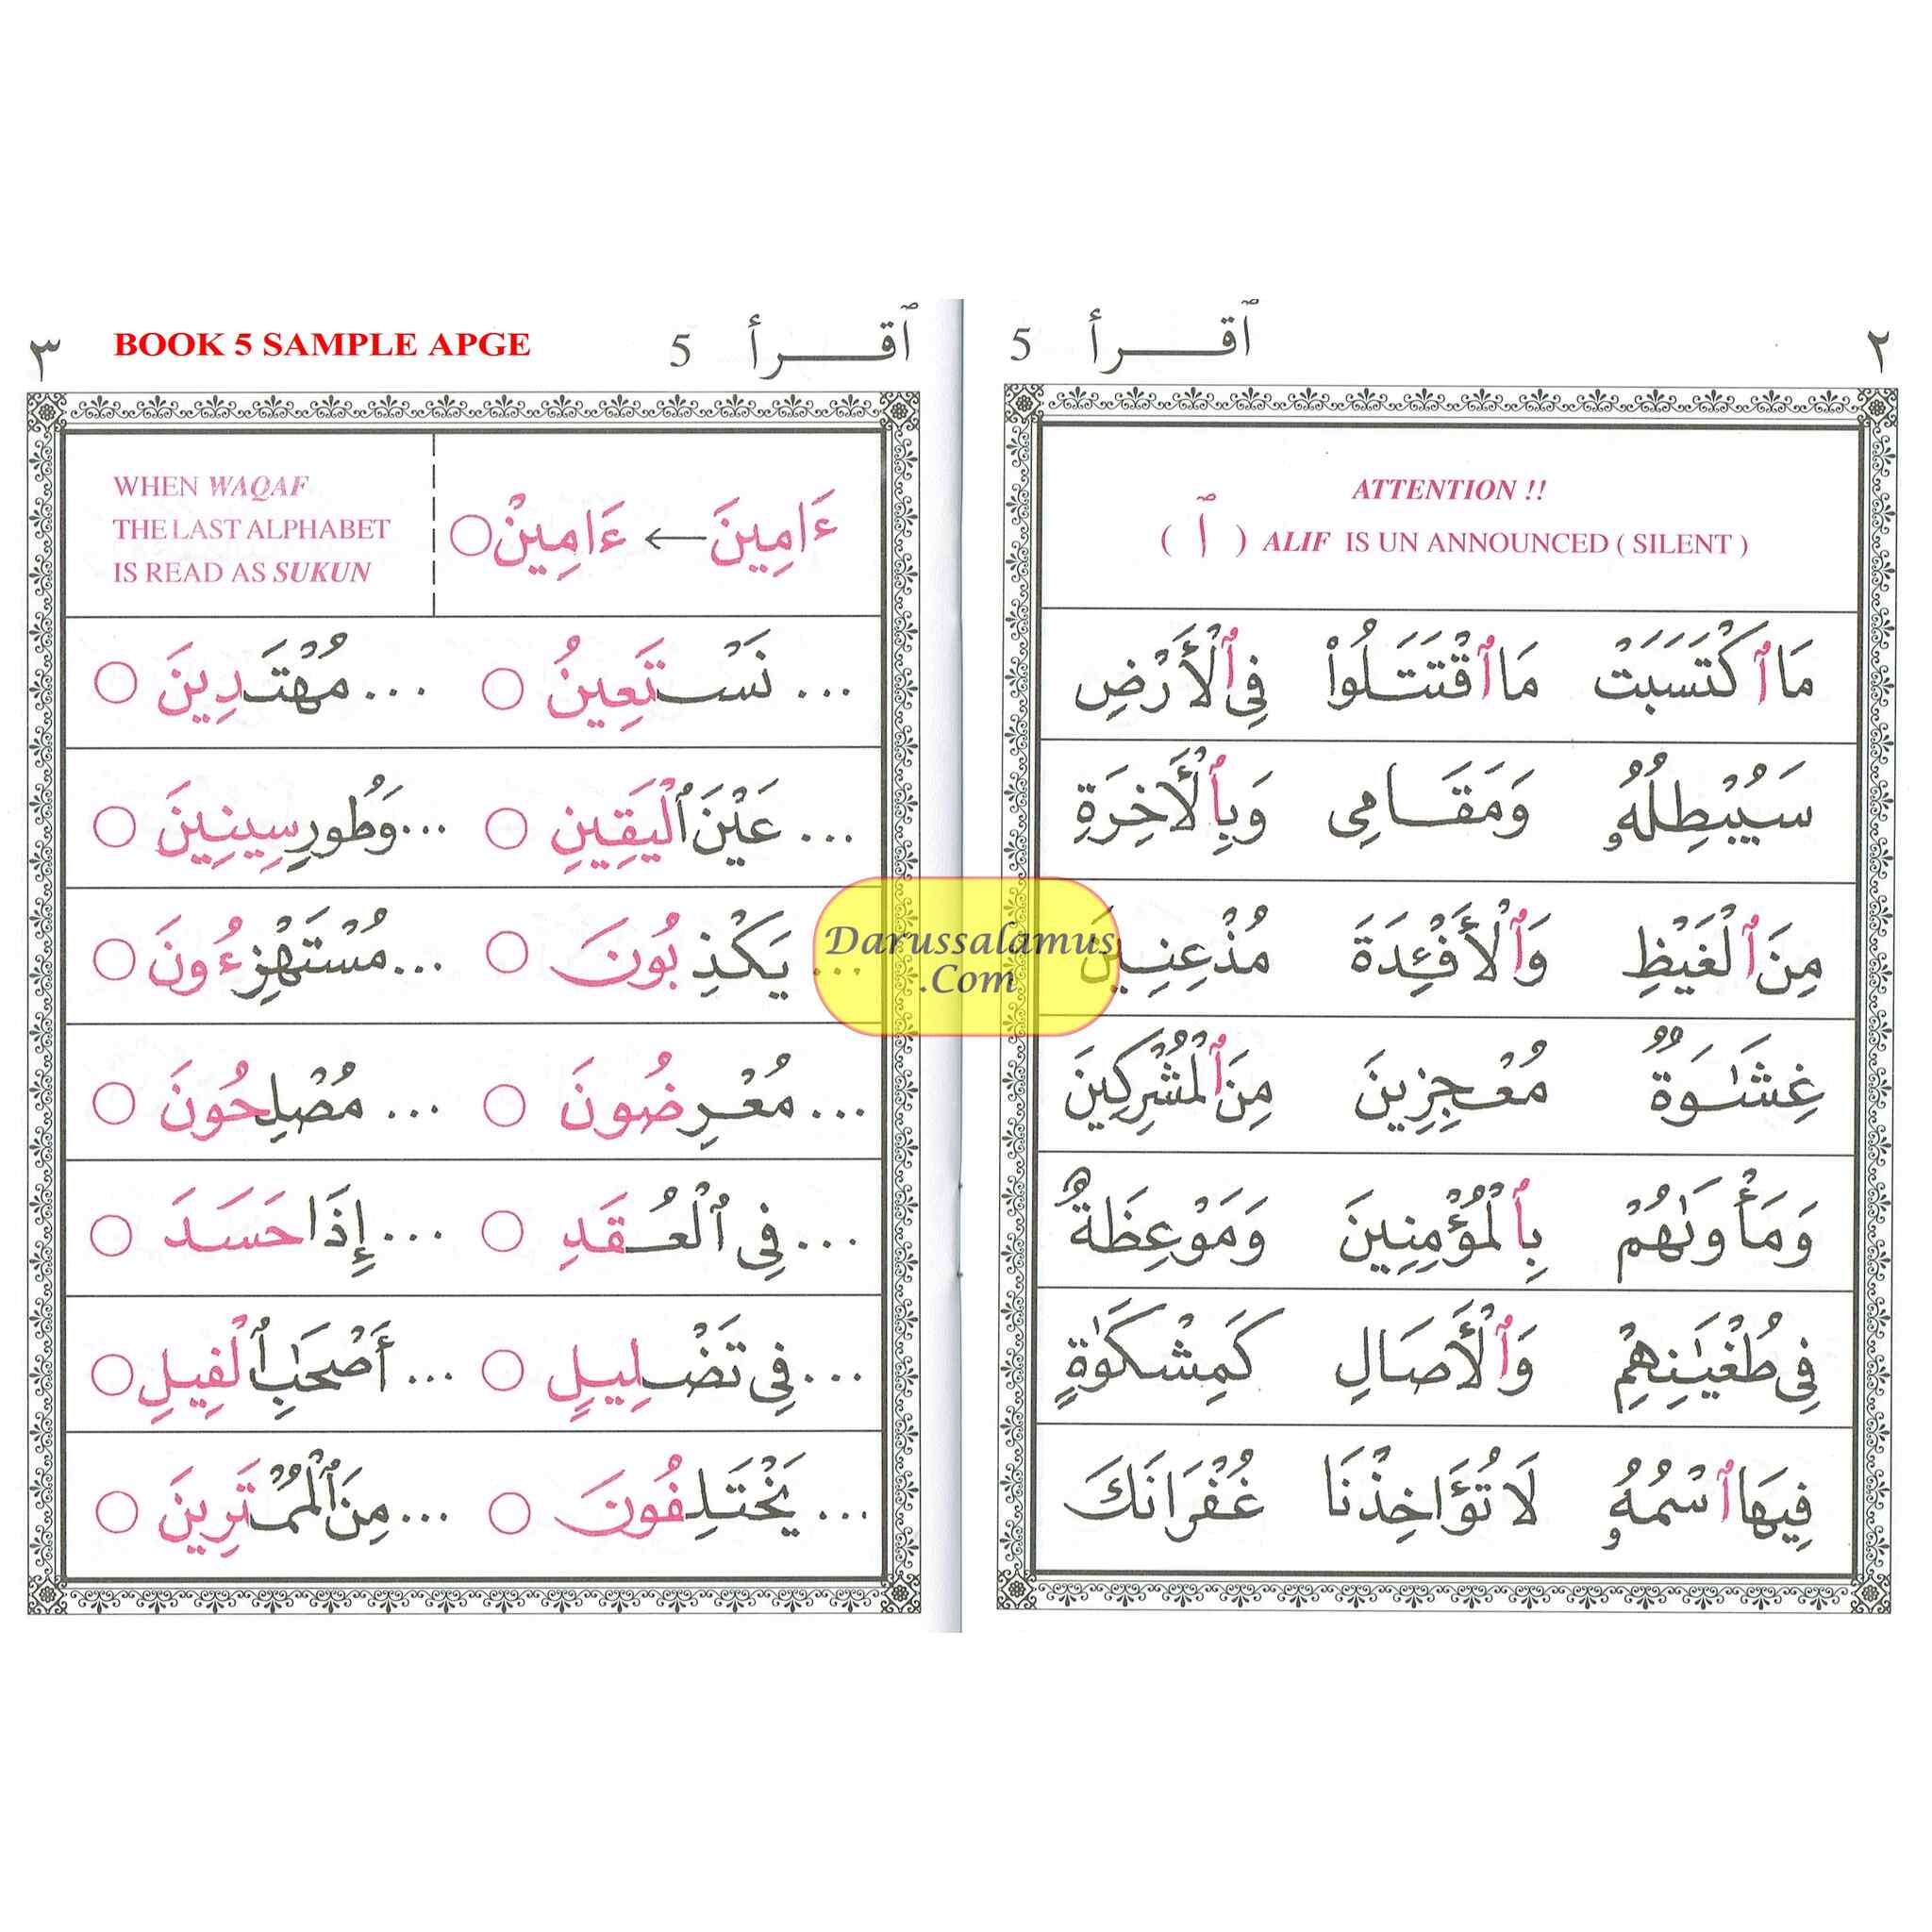 ٱقــرأ 5 ٢
ATTENTION !!
( ٱ ) ALIF IS UN ANNOUNCED ( SILENT )
مَا ٱكْتَسَبَتْ مَا ٱقْتَتَلُوا۟ فِى ٱلْأَرْضِ
سَيُبْطِلُهُۥ وَمَقَـامِى وَبِٱلْأَخِرَةِ
مِنَ ٱلْغَيْظِ وَٱلْأَفْـِٔدَةَ مُذْعِنِـينَ
غِشَـٰوَةٌ مُعْـجِزِينَ مِنَ ٱلْمُشْرِكِينَ
وَمَأْوَىٰهُمْ بِٱلْمُؤْمِنِينَ وَمَوْعِظَةٌ
فِى طُغْيَـٰنِهِمْ وَٱلْأَصَـالِ كَمِشْكَوٰةٍ
فِيهَا ٱسْمُهُۥ لَا تُؤَاخِذْنَا غُفْرَانَكَ
ٱقــرأ 5 BOOK 5 SAMPLE APGE ٣
ءَامِينَ ← ءَامِينْ ○
WHEN WAQAF
THE LAST ALPHABET
IS READ AS SUKUN
... نَسْـتَعِينُ ○ ... مُهْتَـدِينَ ○
... عَيْنَ ٱلْيَقِينِ ○ ... وَطُورِ سِينِينَ ○
... يَكْـذِبُونَ ○ ... مُسْتَهْزِءُونَ ○
... مُعْـرِضُونَ ○ ... مُصْلِحُونَ ○
... فِى ٱلْعُـقَدِ ○ ... إِذَا حَسَـدَ ○
... فِى تَضْـلِيـلٍ ○ ... أَصْحَـٰبِ ٱلْفِيلِ ○
... يَخْتَـلِفُونَ ○ ... مِنَ ٱلْمُمْـتَرِينَ ○
Darussalamus
.Com